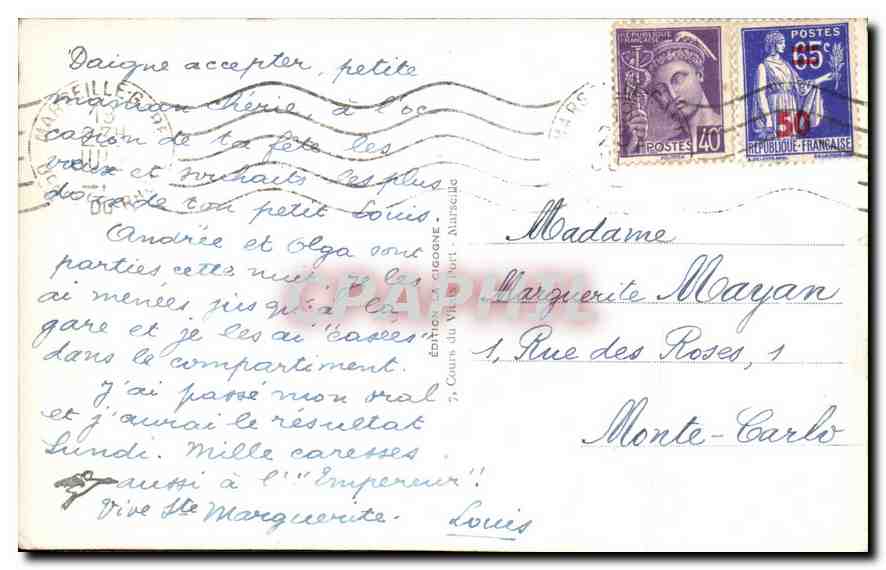 Daigne accepter, petite
maman chérie, à l'oc
casion de ta fête les
vœux et souhaits les plus
doux de ton petit Louis.
Andrée et Olga sont
parties cette nuit, je les
ai menées jusqu'à la
gare et je les ai "casées"
dans le compartiment.
J'ai passé mon oral
et j'aurai le résultat
lundi. Mille caresses
aussi à l'"Empereur".
Vive Ste Marguerite.
Louis
MARSEILLE-GARE
ÉDITION LA CIGOGNE
Cours du Vieux Port - Marseille
CPAPHIL
RÉPUBLIQUE
FRANÇAISE
40c
POSTES
POSTES
65c
50
RÉPUBLIQUE-FRANÇAISE
Madame
Marguerite Mayan
1, Rue des Roses, 1
Monte-Carlo